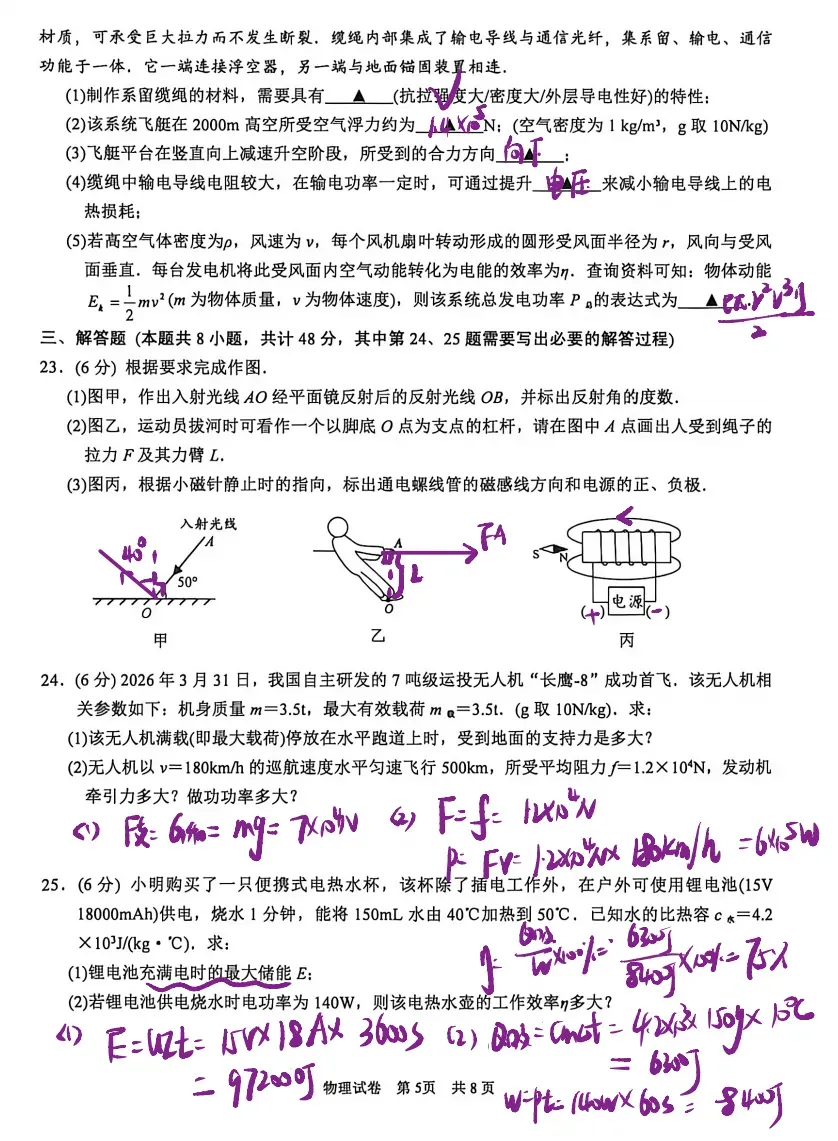 材质，可承受巨大拉力而不发生断裂．缆绳内部集成了输电导线与通信光纤，集系留、输电、通信
功能于一体．它一端连接浮空器，另一端与地面锚固装置相连．
(1)制作系留缆绳的材料，需要具有 ▲ (抗拉强度大/密度大/外层导电性好)的特性；
(2)该系统飞艇在 2000m 高空所受空气浮力约为 ▲ N；(空气密度为 1 kg/m³，g 取 10N/kg)
(3)飞艇平台在竖直向上减速升空阶段，所受到的合力方向 向下 ▲ ；
(4)缆绳中输电导线电阻较大，在输电功率一定时，可通过提升 电压 ▲ 来减小输电导线上的电
热损耗；
(5)若高空气体密度为ρ，风速为 v，每个风机扇叶转动形成的圆形受风面半径为 r，风向与受风
面垂直．每台发电机将此受风面内空气动能转化为电能的效率为η．查询资料可知：物体动能
Eₖ = 1/2 mv² (m 为物体质量，v 为物体速度)，则该系统总发电功率 P 总的表达式为 ▲
三、解答题 (本题共 8 小题，共计 48 分，其中第 24、25 题需要写出必要的解答过程)
23．(6 分) 根据要求完成作图．
(1)图甲，作出入射光线 AO 经平面镜反射后的反射光线 OB，并标出反射角的度数．
(2)图乙，运动员拔河时可看作一个以脚底 O 点为支点的杠杆，请在图中 A 点画出人受到绳子的
拉力 F 及其力臂 L．
(3)图丙，根据小磁针静止时的指向，标出通电螺线管的磁感线方向和电源的正、负极．
入射光线
A
40°
50°
O
甲
A
FA
L
O
乙
S
N
电源
(+)
(-)
丙
24．(6 分) 2026 年 3 月 31 日，我国自主研发的 7 吨级运投无人机“长鹰-8”成功首飞．该无人机相
关参数如下：机身质量 m＝3.5t，最大有效载荷 m 载＝3.5t．(g 取 10N/kg)．求：
(1)该无人机满载(即最大载荷)停放在水平跑道上时，受到地面的支持力是多大？
(2)无人机以 v＝180km/h 的巡航速度水平匀速飞行 500km，所受平均阻力 f＝1.2×10⁴N，发动机
牵引力多大？做功功率多大？
(1) F支= G总= mg= 7×10⁴N
(2) F=f= 1.2×10⁴N
P= FV= 1.2×10⁴N× 180km/h =6×10⁵W
25．(6 分) 小明购买了一只便携式电热水杯，该杯除了插电工作外，在户外可使用锂电池(15V
18000mAh)供电，烧水 1 分钟，能将 150mL 水由 40℃加热到 50℃．已知水的比热容 c 水＝4.2
×10³J/(kg·℃)．求：
(1)锂电池充满电时的最大储能 E；
(2)若锂电池供电烧水时电功率为 140W，则该电热水壶的工作效率η多大？
η= Q吸/W ×100%= 6300J/8400J ×100%= 75%
(1) E=UIt= 15V×18A× 3600s
= 972000J
(2) Q吸=Cm△t = 4.2×10³× 150g× 10℃
= 6300J
W=Pt= 140W×60s= 8400J
物理试卷 第 5页 共 8 页